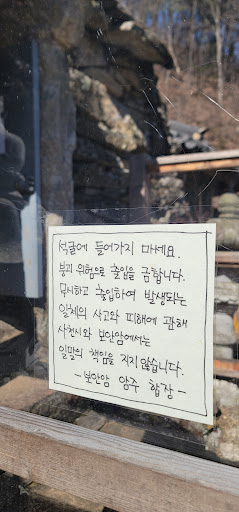 석굴에 들어가지 마세요.
붕괴 위험으로 출입을 금합니다.
무시하고 출입하여 발생되는
일체의 사고와 피해에 관해
사천시와 보안암에서는
일말의 책임을 지지 않습니다.
- 보안암 암주 합장 -